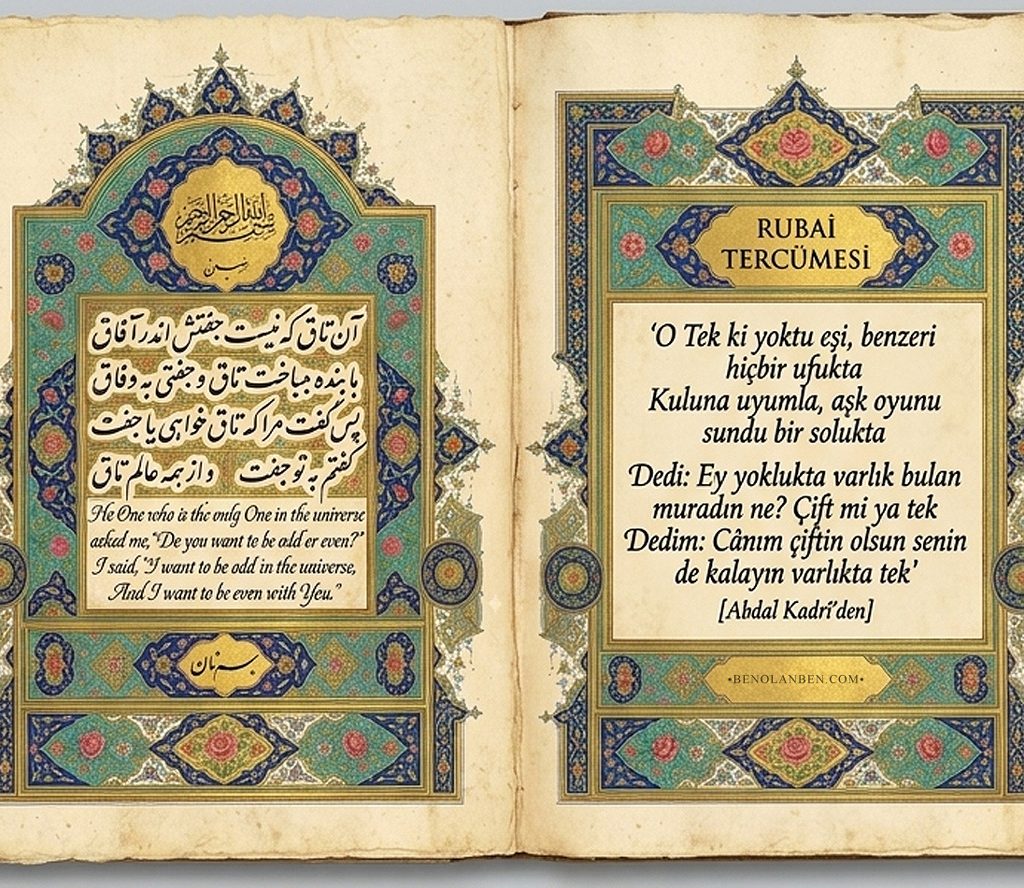 بسم الله الرحمن الرحيم
آن تاق که نیست جفتش اندر آفاق
با بنده بباخت تاق و جفتی به وفاق
پس گفت مرا که تاق خواهی یا جفت
گفتم به تو جفت و از همه عالم تاق
He One who is the only One in the universe
asked me, "De you want to be ald er even?"
I said, "I want to be odd in the universe,
And I want to be even with Yeu."
RUBAİ
TERCÜMESİ
'O Tek ki yoktu eşi, benzeri
hiçbir ufukta
Kuluna uyumla, aşk oyunu
sundu bir solukta
Dedi: Ey yoklukta varlık bulan
muradın ne? Çift mi ya tek
Dedim: Cânım çiftin olsun senin
de kalayın varlıkta tek'
[Abdal Kadrî'den]
•BENOLANBEN.COM•